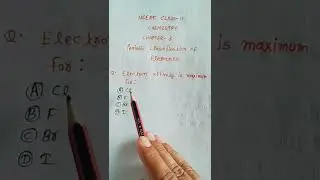 NCERT CLASS-11
CHEMISTRY
CHAPTER-3
Periodic classification of
Elements
Q: Electron affinity is maximum
for:
(A) Cl
(B) F
(C) Br
(D) I
Q: Electro is maximum
for:
(A) Cl
(B) F
(C) Br
(D) I